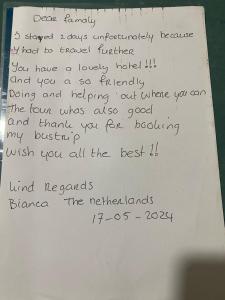 Dear family
I stayed 2 days unfortunately because
I had to travel further
You have a lovely hotel!!!
And you a so friendly
Doing and helping out where you can
The tour whas also good
and thank you for booking
my bustrip
Wish you all the best!!
Kind Regards
Bianca The Netherlands
17-05-2024